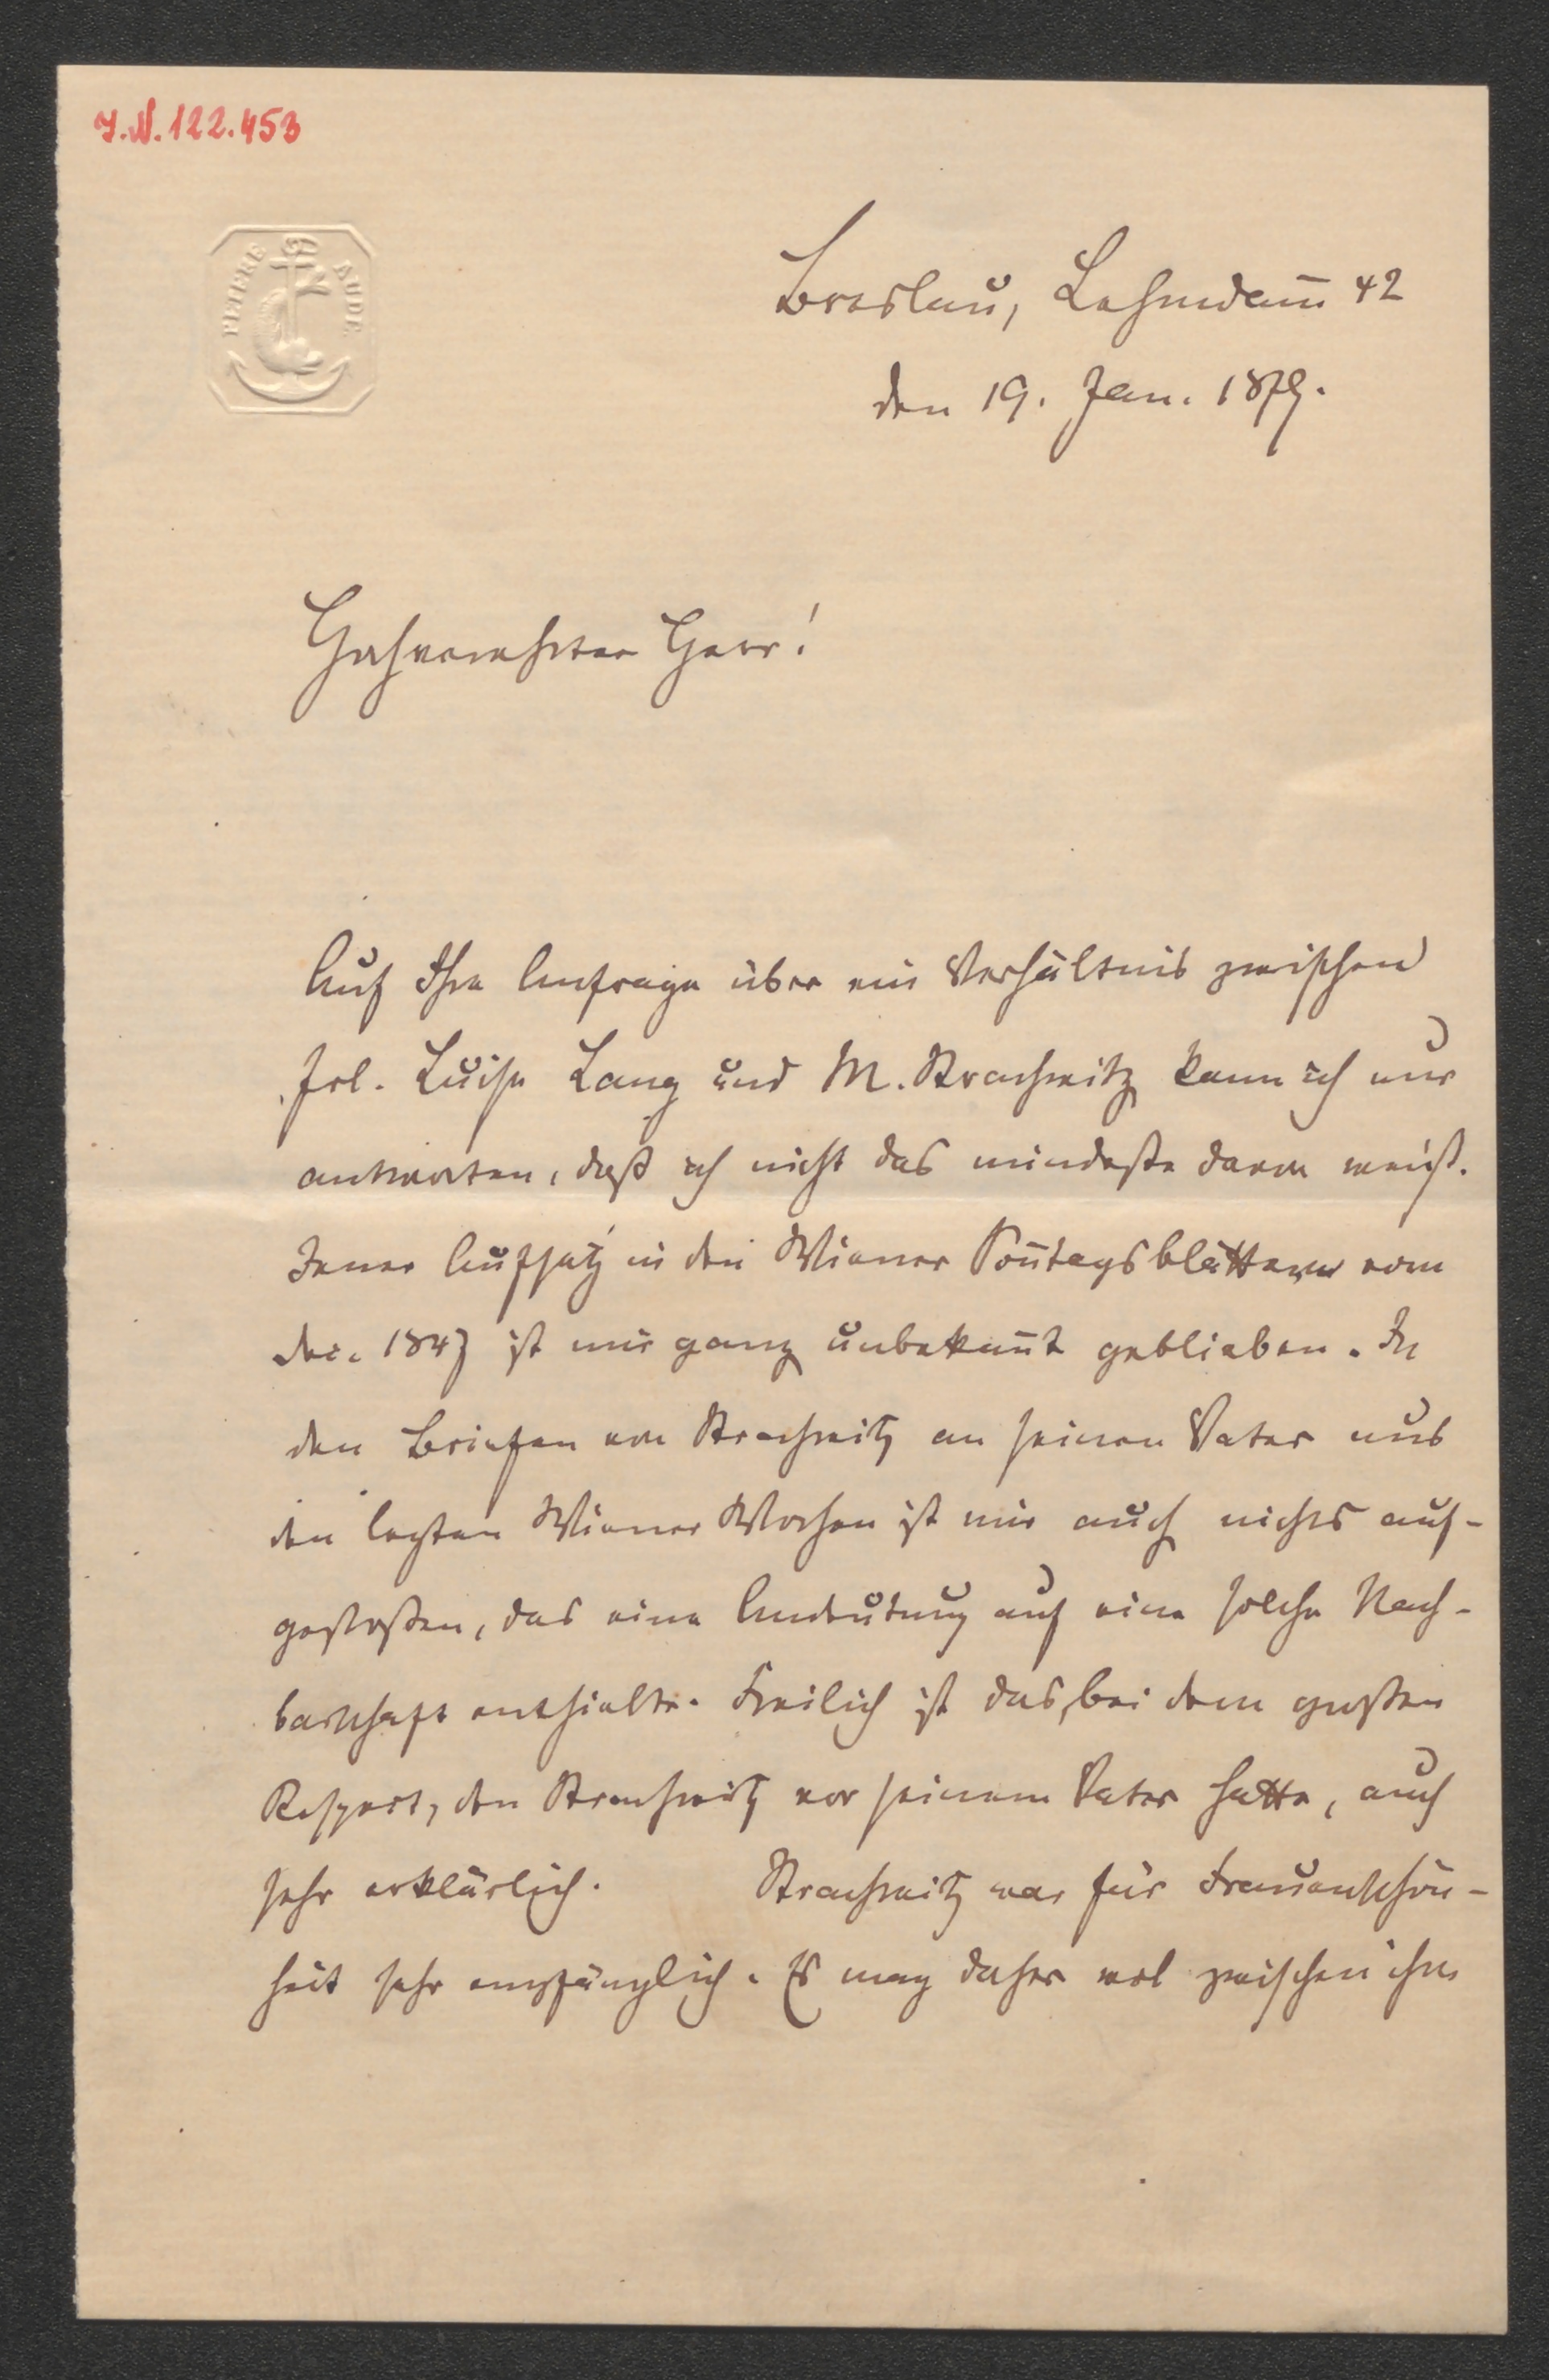 I.N. 122.453
PERIRE AUDE
Breslau, Lehmdam̄ 42
den 19. Jan. 1879.
Hochverehrter Herr!
Auf Ihre Anfrage über ein Verhältnis zwischen
Frl. Luise Lang und M. Strachwitz kann ich nur
antworten, daß ich nicht das mindeste davon weiß.
Jener Aufsatz in den Wiener Son̄tagsblättern vom
Dec. 1847 ist mir ganz unbekan̄t geblieben. In
den Briefen von Strachwitz an seinen Vater aus
den letzten Wiener Wochen ist mir auch nichts auf-
gestoßen, das eine Andeutung auf eine solche Nach-
barschaft enthielte. Freilich ist das, bei dem großen
Respect, den Strachwitz vor seinem Vater hatte, auch
sehr erklärlich. Strachwitz war für Frauenschön-
heit sehr empfänglich. Es mag daher wol zwischen ihm